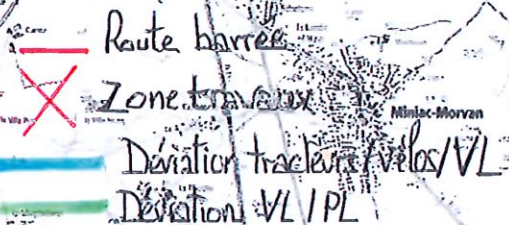 Route barrée
Zone travaux
Miniac-Morvan
Déviation tracteurs/vélos/VL
Déviation VL/PL